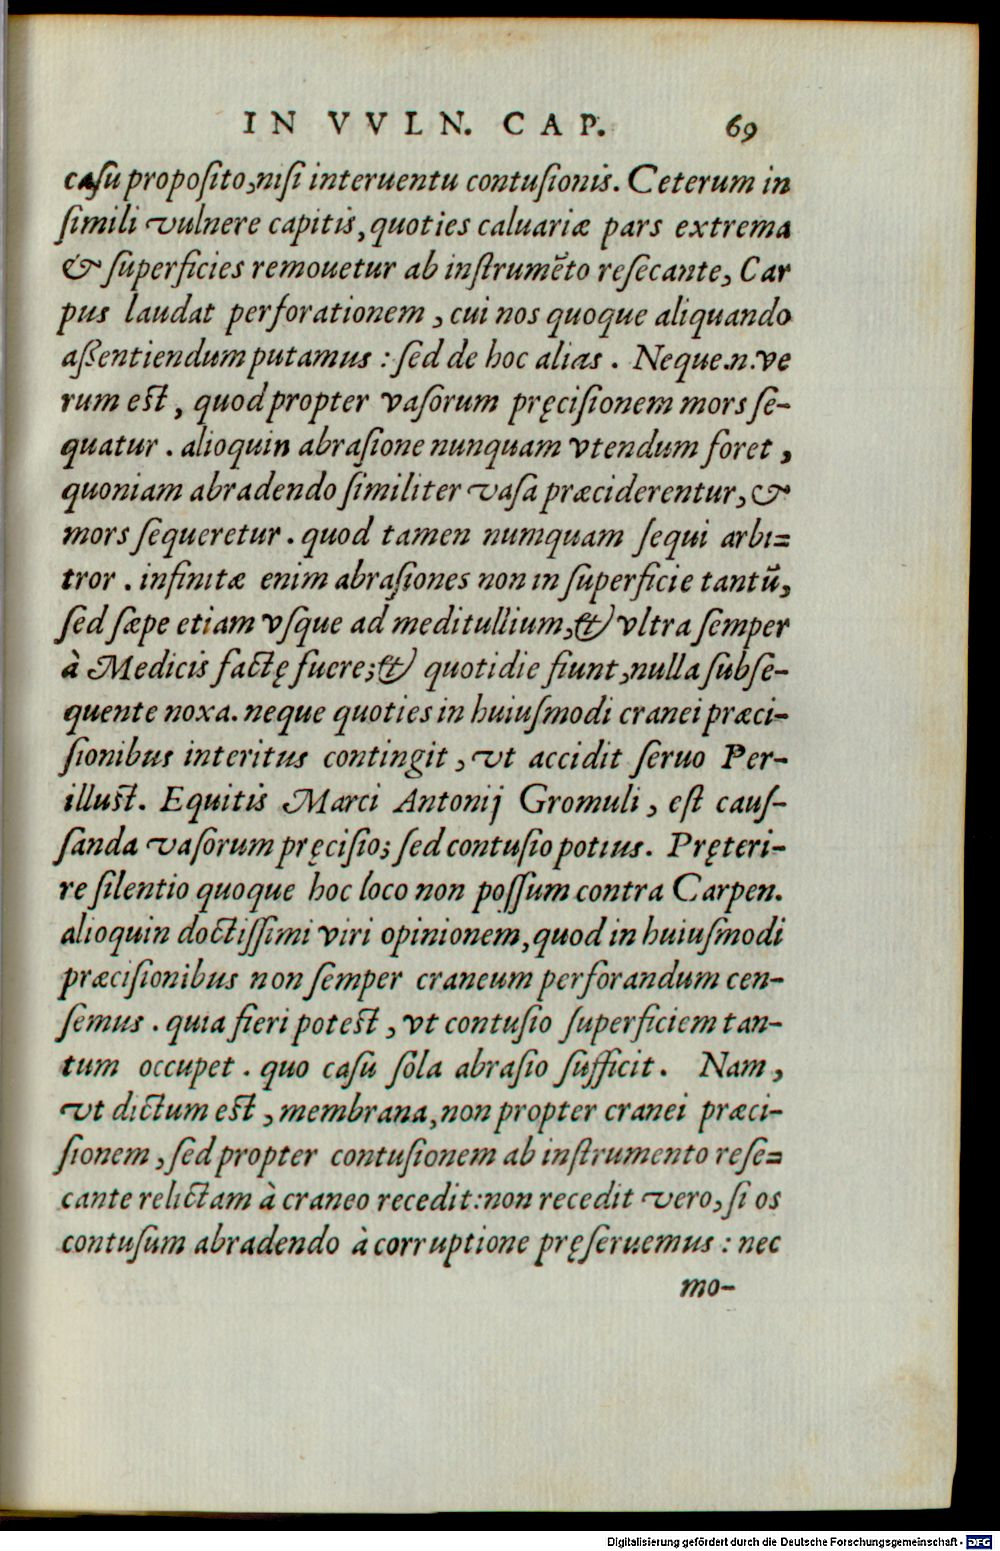 IN VVLN. CAP. 69
caſu propoſito, niſi interuentu contuſionis. Ceterum in
ſimili vulnere capitis, quoties caluariæ pars extrema
& ſuperficies remouetur ab inſtrumẽto reſecante, Car
pus laudat perforationem, cui nos quoque aliquando
aßentiendum putamus: ſed de hoc alias. Neque.n.ve
rum eſt, quod propter vaſorum pręciſionem mors ſe-
quatur. alioquin abraſione nunquam vtendum foret,
quoniam abradendo ſimiliter vaſa præciderentur, &
mors ſequeretur. quod tamen numquam ſequi arbi=
tror. infinitæ enim abraſiones non in ſuperficie tantũ,
ſed ſæpe etiam vſque ad meditullium, & vltra ſemper
à Medicis factę fuere; & quotidie fiunt, nulla ſubſe-
quente noxa. neque quoties in huiuſmodi cranei præci-
ſionibus interitus contingit, vt accidit ſeruo Per-
illuſt. Equitis Marci Antonij Gromuli, eſt cauſ-
ſanda vaſorum pręciſio; ſed contuſio potius. Pręteri-
re ſilentio quoque hoc loco non poſſum contra Carpen.
alioquin doctiſſimi viri opinionem, quod in huiuſmodi
præciſionibus non ſemper craneum perforandum cen-
ſemus. quia fieri poteſt, vt contuſio ſuperficiem tan-
tum occupet. quo caſu ſola abraſio ſufficit. Nam,
vt dictum eſt, membrana, non propter cranei præci-
ſionem, ſed propter contuſionem ab inſtrumento reſe=
cante relictam à craneo recedit: non recedit vero, ſi os
contuſum abradendo à corruptione pręſeruemus: nec
mo-
Digitalisierung gefördert durch die Deutsche Forschungsgemeinschaft - DFG